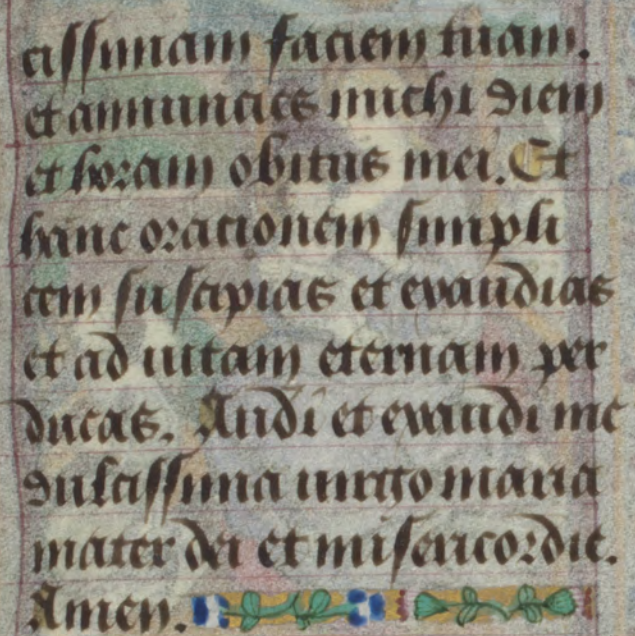 cissimam faciem tuam.
et annuncies michi diem
et horam obitus mei. Et
hanc orationem simpli
cem suscipias et exaudias
et ad uitam eternam per
ducas. Audi et exaudi me
dulcissima uirgo maria
mater dei et misericordie.
Amen.